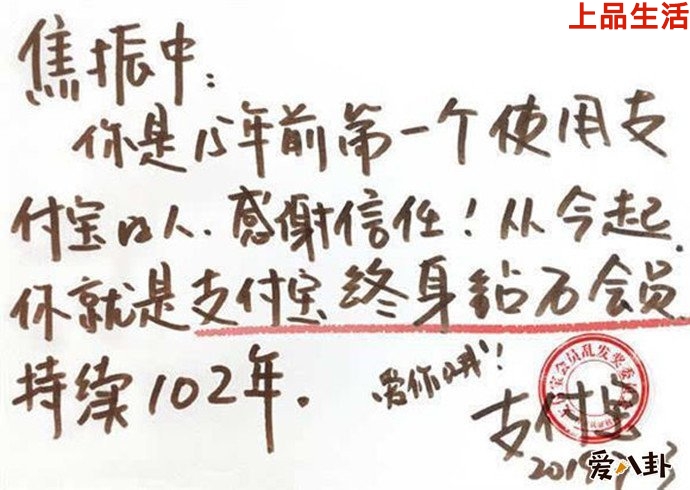 上品生活
焦振中:
你是15年前第一个使用支
付宝的人.感谢信任!从今起.
你就是支付宝终身钻石会员.
持续102年.
爱你哦!
宝会员乱发奖委
支付宝
爱八卦